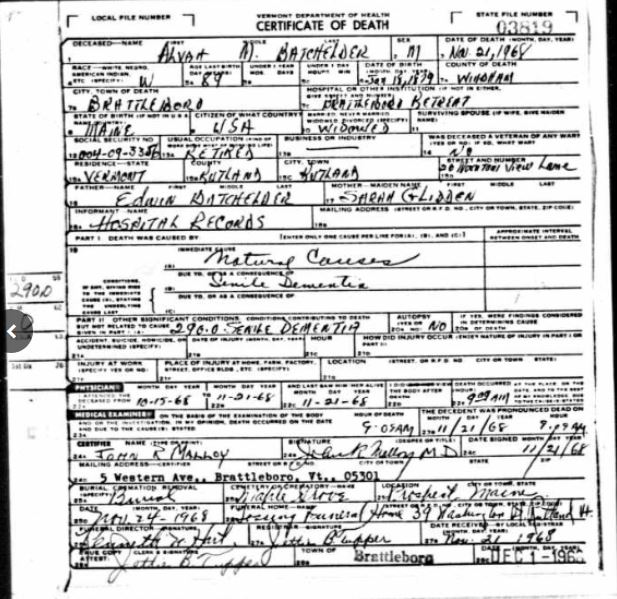 LOCAL FILE NUMBER
VERMONT DEPARTMENT OF HEALTH
CERTIFICATE OF DEATH
STATE FILE NUMBER
03819
DECEASED—NAME FIRST MIDDLE LAST SEX DATE OF DEATH (MONTH, DAY, YEAR)
ALVAH M. BATCHELDER M NOV. 21, 1968
RACE—WHITE, NEGRO, AMERICAN INDIAN, ETC. (SPECIFY) AGE LAST BIRTHDAY UNDER 1 YEAR UNDER 1 DAY DATE OF BIRTH COUNTY OF DEATH
W 89 Jan 18, 1879 WINDHAM
CITY, TOWN OF DEATH HOSPITAL OR OTHER INSTITUTION (IF NOT IN EITHER, GIVE STREET AND NUMBER)
BRATTLEBORO BRATTLEBORO RETREAT
STATE OF BIRTH (IF NOT IN U.S.A. NAME COUNTRY) CITIZEN OF WHAT COUNTRY MARRIED, NEVER MARRIED WIDOWED DIVORCED (SPECIFY) SURVIVING SPOUSE (IF WIFE, GIVE MAIDEN NAME)
MAINE USA WIDOWED
SOCIAL SECURITY NO USUAL OCCUPATION BUSINESS OR INDUSTRY WAS DECEASED A VETERAN OF ANY WAR?
RETIRED
RESIDENCE—STATE COUNTY CITY, TOWN STREET AND NUMBER
VERMONT RUTLAND RUTLAND View Lane
FATHER—NAME FIRST MIDDLE LAST MOTHER—MAIDEN NAME FIRST MIDDLE LAST
EDWIN BATCHELDER SARAH GLIDDEN
INFORMANT—NAME MAILING ADDRESS (STREET OR R.F.D. NO., CITY OR TOWN, STATE, ZIP CODE)
HOSPITAL RECORDS
PART I DEATH WAS CAUSED BY (ENTER ONLY ONE CAUSE PER LINE FOR (A), (B), AND (C)) APPROXIMATE INTERVAL BETWEEN ONSET AND DEATH
IMMEDIATE CAUSE
Natural Causes
DUE TO, OR AS A CONSEQUENCE OF
Senile Dementia
290.0
DUE TO, OR AS A CONSEQUENCE OF
CONDITIONS, IF ANY, GIVING RISE TO THE IMMEDIATE CAUSE (A), STATING THE UNDERLYING CAUSE LAST
PART II OTHER SIGNIFICANT CONDITIONS, CONDITIONS CONTRIBUTING TO DEATH BUT NOT RELATED TO CAUSE GIVEN IN PART I (A) AUTOPSY IF YES, WERE FINDINGS CONSIDERED IN DETERMINING CAUSE OF DEATH
290.0 SENILE DEMENTIA NO
ACCIDENT, SUICIDE, HOMICIDE, OR UNDETERMINED (SPECIFY) DATE OF INJURY (MONTH, DAY, YEAR) HOUR HOW DID INJURY OCCUR (ENTER NATURE OF INJURY IN PART I OR PART II)
INJURY AT WORK (SPECIFY YES OR NO) PLACE OF INJURY AT HOME, FARM, FACTORY, STREET, OFFICE BLDG., ETC. (SPECIFY) LOCATION (STREET, OR R.F.D. NO CITY OR TOWN STATE)
PHYSICIAN MONTH DAY YEAR MONTH DAY YEAR AND LAST SAW HIM HER ALIVE MONTH DAY YEAR DEATH OCCURRED
10-15-68 TO 11-21-68 11-21-68
MEDICAL EXAMINER ON THE BASIS OF THE EXAMINATION OF THE BODY AND/OR THE INVESTIGATION, IN MY OPINION, DEATH OCCURRED ON THE DATE AND DUE TO THE CAUSE(S) STATED HOUR OF DEATH THE DECEDENT WAS PRONOUNCED DEAD ON
9:05AM 11/21/68
CERTIFIER NAME (TYPE OR PRINT) SIGNATURE (DEGREE OR TITLE) DATE SIGNED (MONTH, DAY, YEAR)
JOHN R MALLOY John R Malloy M.D 11/21/68
MAILING ADDRESS—CERTIFIER STREET OR R.F.D. NO CITY OR TOWN STATE ZIP
5 Western Ave., Brattleboro, Vt., 05301
BURIAL, CREMATION, REMOVAL CEMETERY OR CREMATORY—NAME LOCATION CITY OR TOWN, STATE
Burial Maple Grove Prospect Maine
DATE (MONTH, DAY, YEAR) FUNERAL HOME—NAME
Nov 24-1968 Funeral Home 39 Washington
FUNERAL DIRECTOR SIGNATURE REGISTRAR SIGNATURE DATE RECEIVED BY LOCAL REGISTRAR
Kenneth Tupper Nov. 21 1968
TRUE COPY ATTEST: CLERK'S SIGNATURE TOWN OF DATE (MONTH, DAY, YEAR)
B. Tupper Brattleboro DEC 1-1968